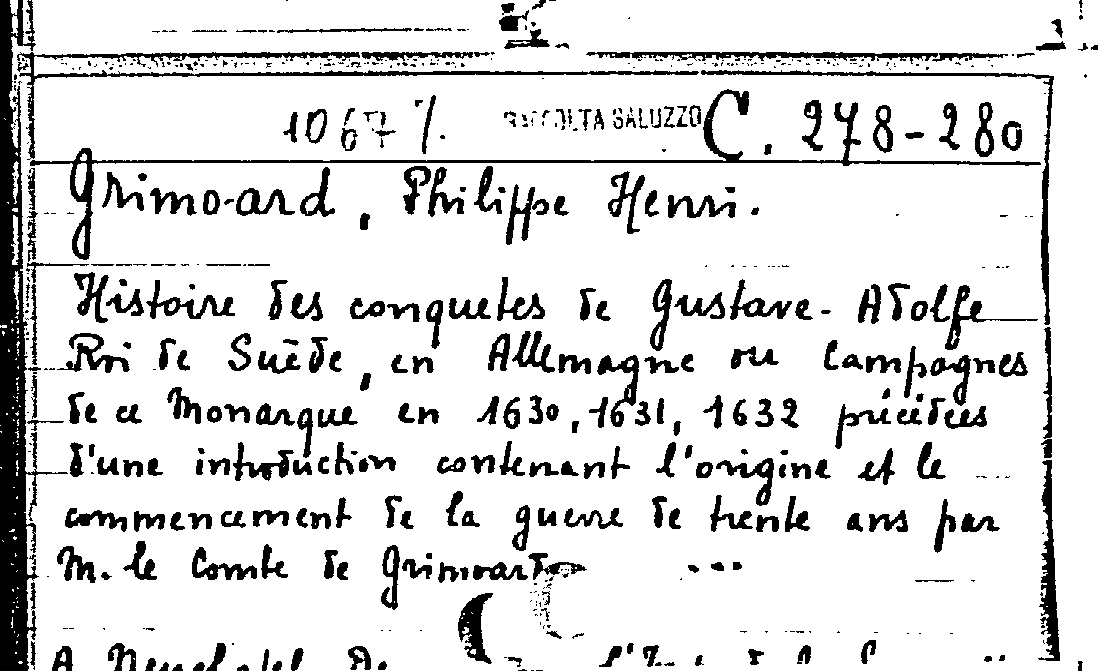 10677. RACCOLTA SALUZZO C. 278-280
Grimoard, Philippe Henri.
Histoire des conquetes de Gustave-Adolfe
Roi de Suède, en Allemagne ou Campagnes
de ce Monarque en 1630, 1631, 1632 précédées
d'une introduction contenant l'origine et le
commencement de la guerre de trente ans par
M. le Comte de Grimoard ...
A Neuchatel De